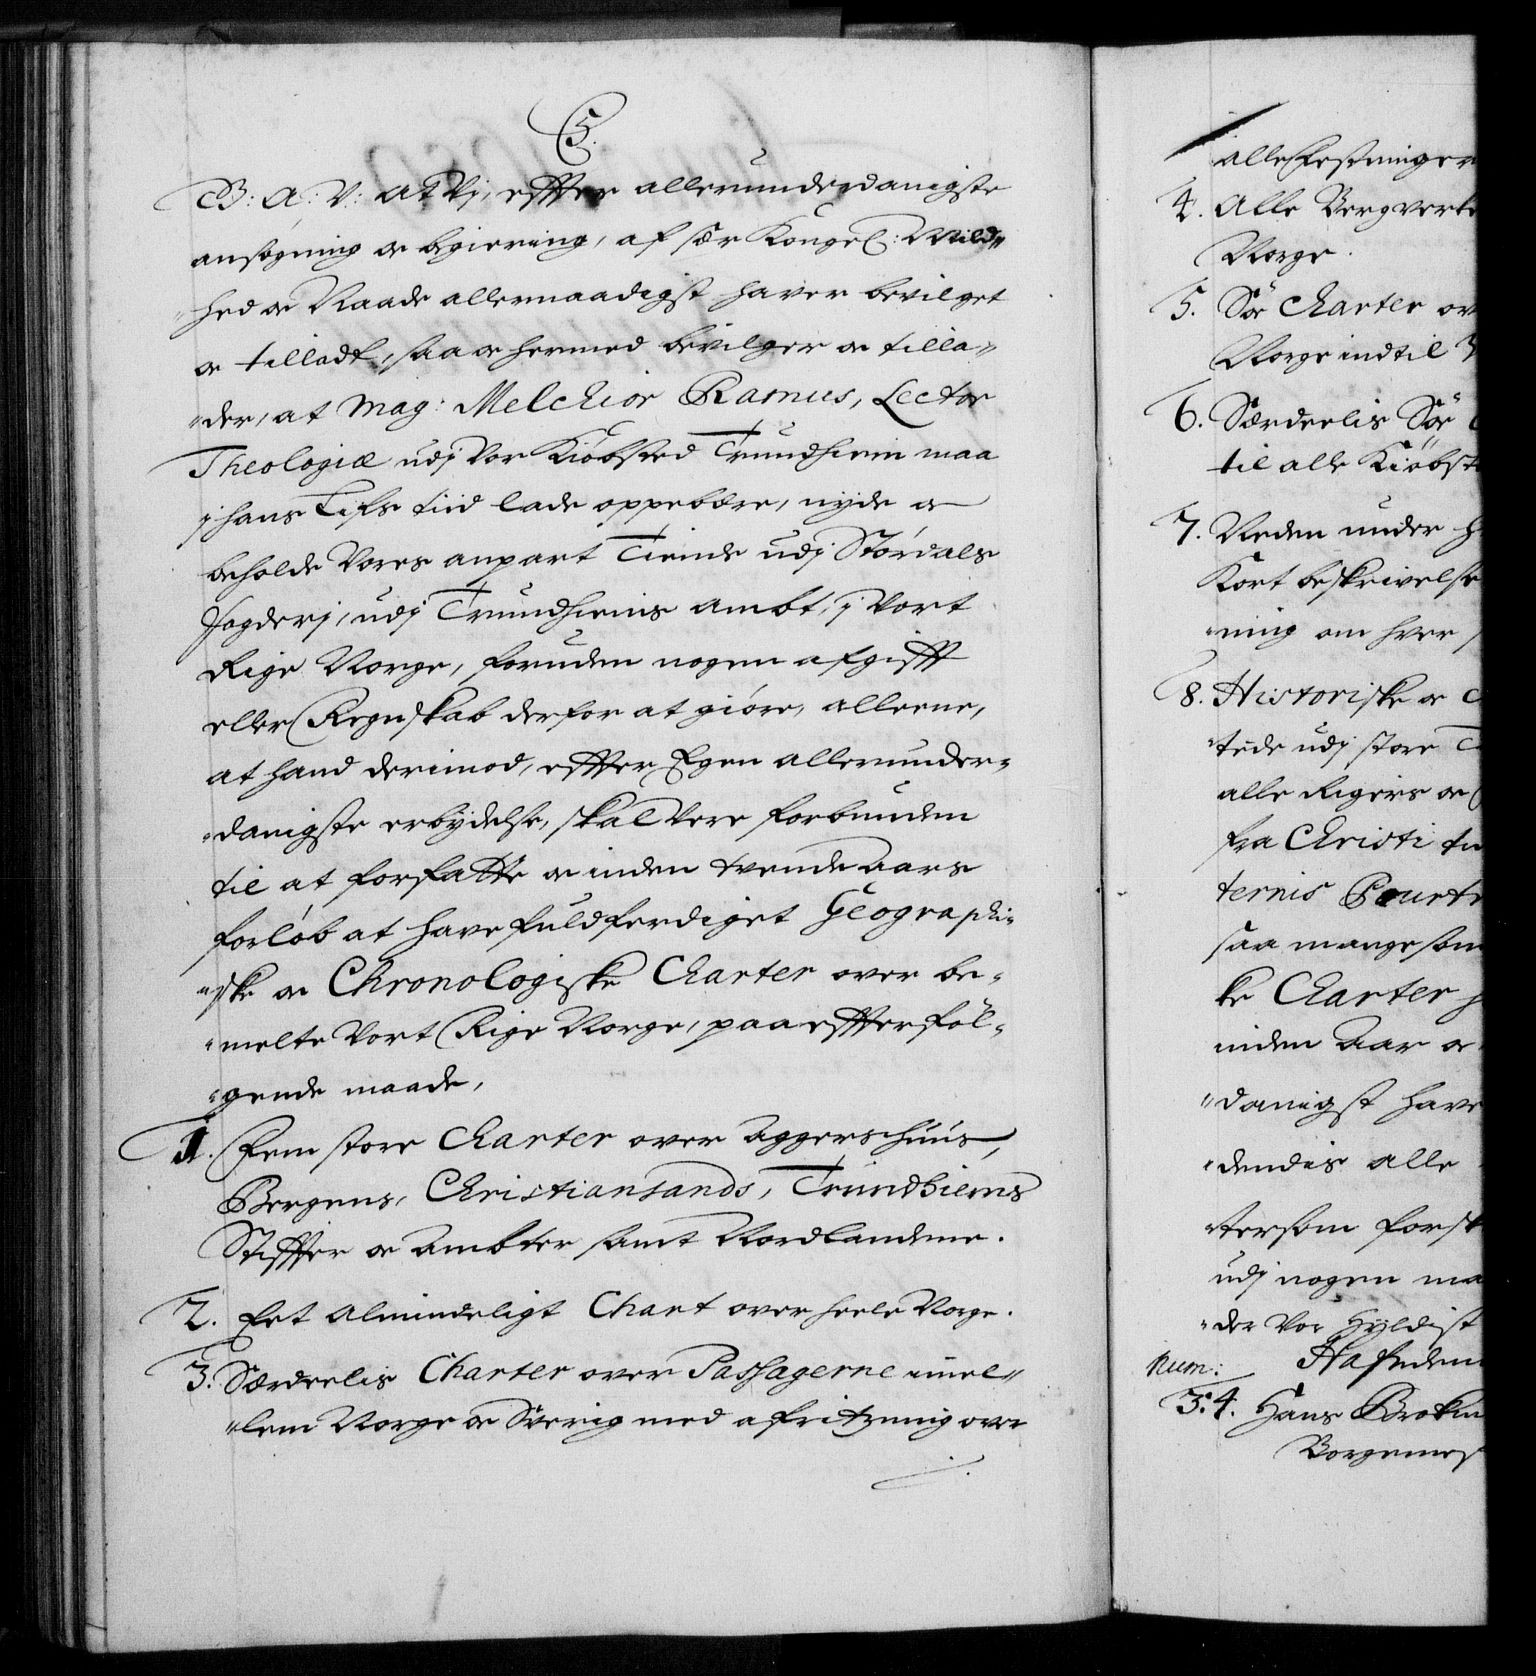 C5.
G: A: V: at Vi, effter allerunderdanigste
ansøgning oc begiering, af sær Kongel: Mild„
„hed oc Naade allernaadigst haver bevilget
oc tilladt, saa oc hermed bevilger oc tilla„
„der, at Mag: Melchior Ramus, Lector
Theologiæ udj Vor Kiøbsted Trundhiem maa
j hans Lifs tiid lade oppebære, nyde oc
beholde Vores anpart Tiende udj Størdals
fogderj, udj Trundhiems Ambt, j Vort
Rige Norge, foruden nogen afgifft
eller Regnskab derfor at giøre, alleene,
at hand derimod, effter Egen allerunder„
„danigste erbydelse, skal Vere forbunden
til at forfatte oc inden tvende Aars
forløb at have fuldferdiget Geographi„
„ske oc Chronologiske Charter over be„
„melte Vort Rige Norge, paa effterføl„
„gende maade,
1. Fem store Charter over Aggershuus,
Bergens, Christiansands, Trundhiems
Stiffter oc Ambter samt Nordlandene.
2. Eet Almindeligt Chart over heele Norge.
3. Særdeelis Charter over Passagerne imel„
„lem Norge oc Sverig med afritzning over
alle Festninger
4. Alle Bergverke
Norge.
5. Søe Charter ov
Norge indtil
6. Særdeelis Søe
til alle Kiøbst
7. Neden under h
Kort beskrivelse
„ning om hver
8. Historiske oc C
„tede udj store T
alle Rigers oc
fra Christi
ternis Pourtr
saa mange som
ke Charter
inden Aar oc
„danigst have
„dendis alle
„tersom forsk
udj nogen ma
„der Vor Hyldist
Hafnden
Num:
34. Hans Brokm
Borgemes